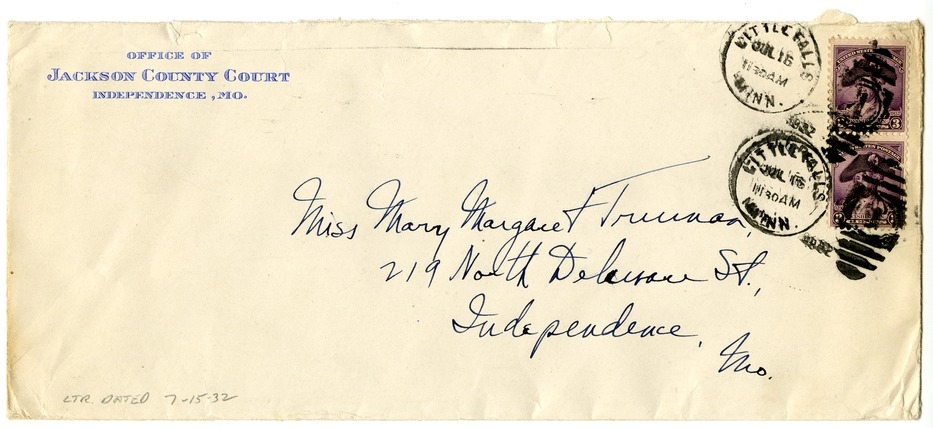 OFFICE OF
JACKSON COUNTY COURT
INDEPENDENCE, MO.
LITTLE FALLS
JUL 16
11 30 AM
MINN.
1932
3
LITTLE FALLS
JUL 16
11 30 AM
MINN.
1932
3
Miss Mary Margaret Truman,
219 North Delaware St.,
Independence,
Mo.
LTR. DATED 7-15-32